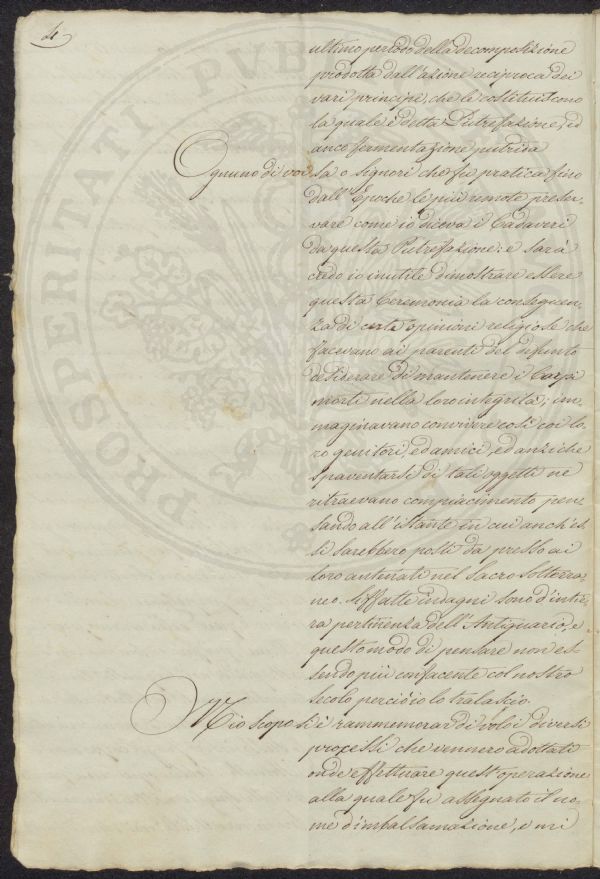 4
ultimo periodo della decomposizione
prodotta dall'azione reciproca dei
vari principi, che le costituiscono
la quale è detta Putrefazione, ed
anco fermentazione putrida
Ognuno di voi sa o Signori che fù pratica fino
dall'Epoche le più remote preser-
vare come io diceva i Cadaveri
da questa Putrefazione: e sarà
credo io inutile dimostrare essere
questa Ceremonia la conseguen-
za di certe opinioni religiose che
facevano ai parenti del defunto
desiderare di mantenere i Corpi
morti nella loro integrità; im-
maginavano convivere così coi lo-
ro genitori, ed amici, ed anziche
spaventarsi di tali oggetti ne
ritraevano compiacimento pen-
sando all'istante in cui anch'es-
si sarebbero posti da presso ai
loro antenati nel Sacro Sotterra-
neo. Siffatte indagni sono d'intie-
ra pertinenza dell'Antiquario, e
questo modo di pensare non es-
sendo più confacente col nostro
secolo perciò io lo tralascio.
Mio scopo si è rammemorar di volo i diversi
processi che vennero adottati
onde effettuare quest'operazione
alla quale fu assegnato il no-
me d'imbalsamazione, e mi
PROSPERITATI PVBL